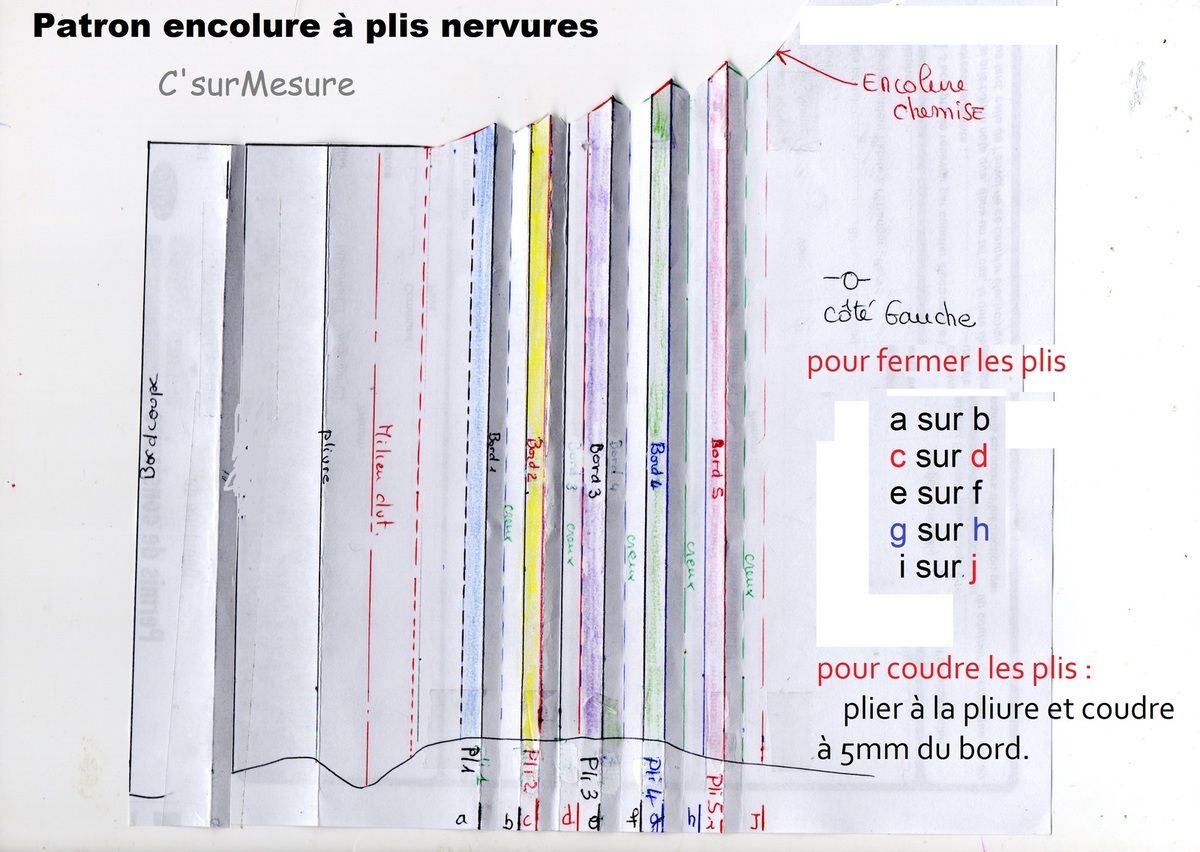 Patron encolure à plis nervures
C'surMesure
Encolure
chemise
côté Gauche
pour fermer les plis
a sur b
c sur d
e sur f
g sur h
i sur j
pour coudre les plis :
plier à la pliure et coudre
à 5mm du bord.
Bord coupe
pliure
Milieu dvt.
Bord 1
creux
Bord 2
creux
Bord 3
Bord 3
Bord 4
creux
Bord 4
creux
Bord 5
creux
Pli 1
Pli 2
Pli 3
Pli 4
Pli 5
a b c d e f g h i J